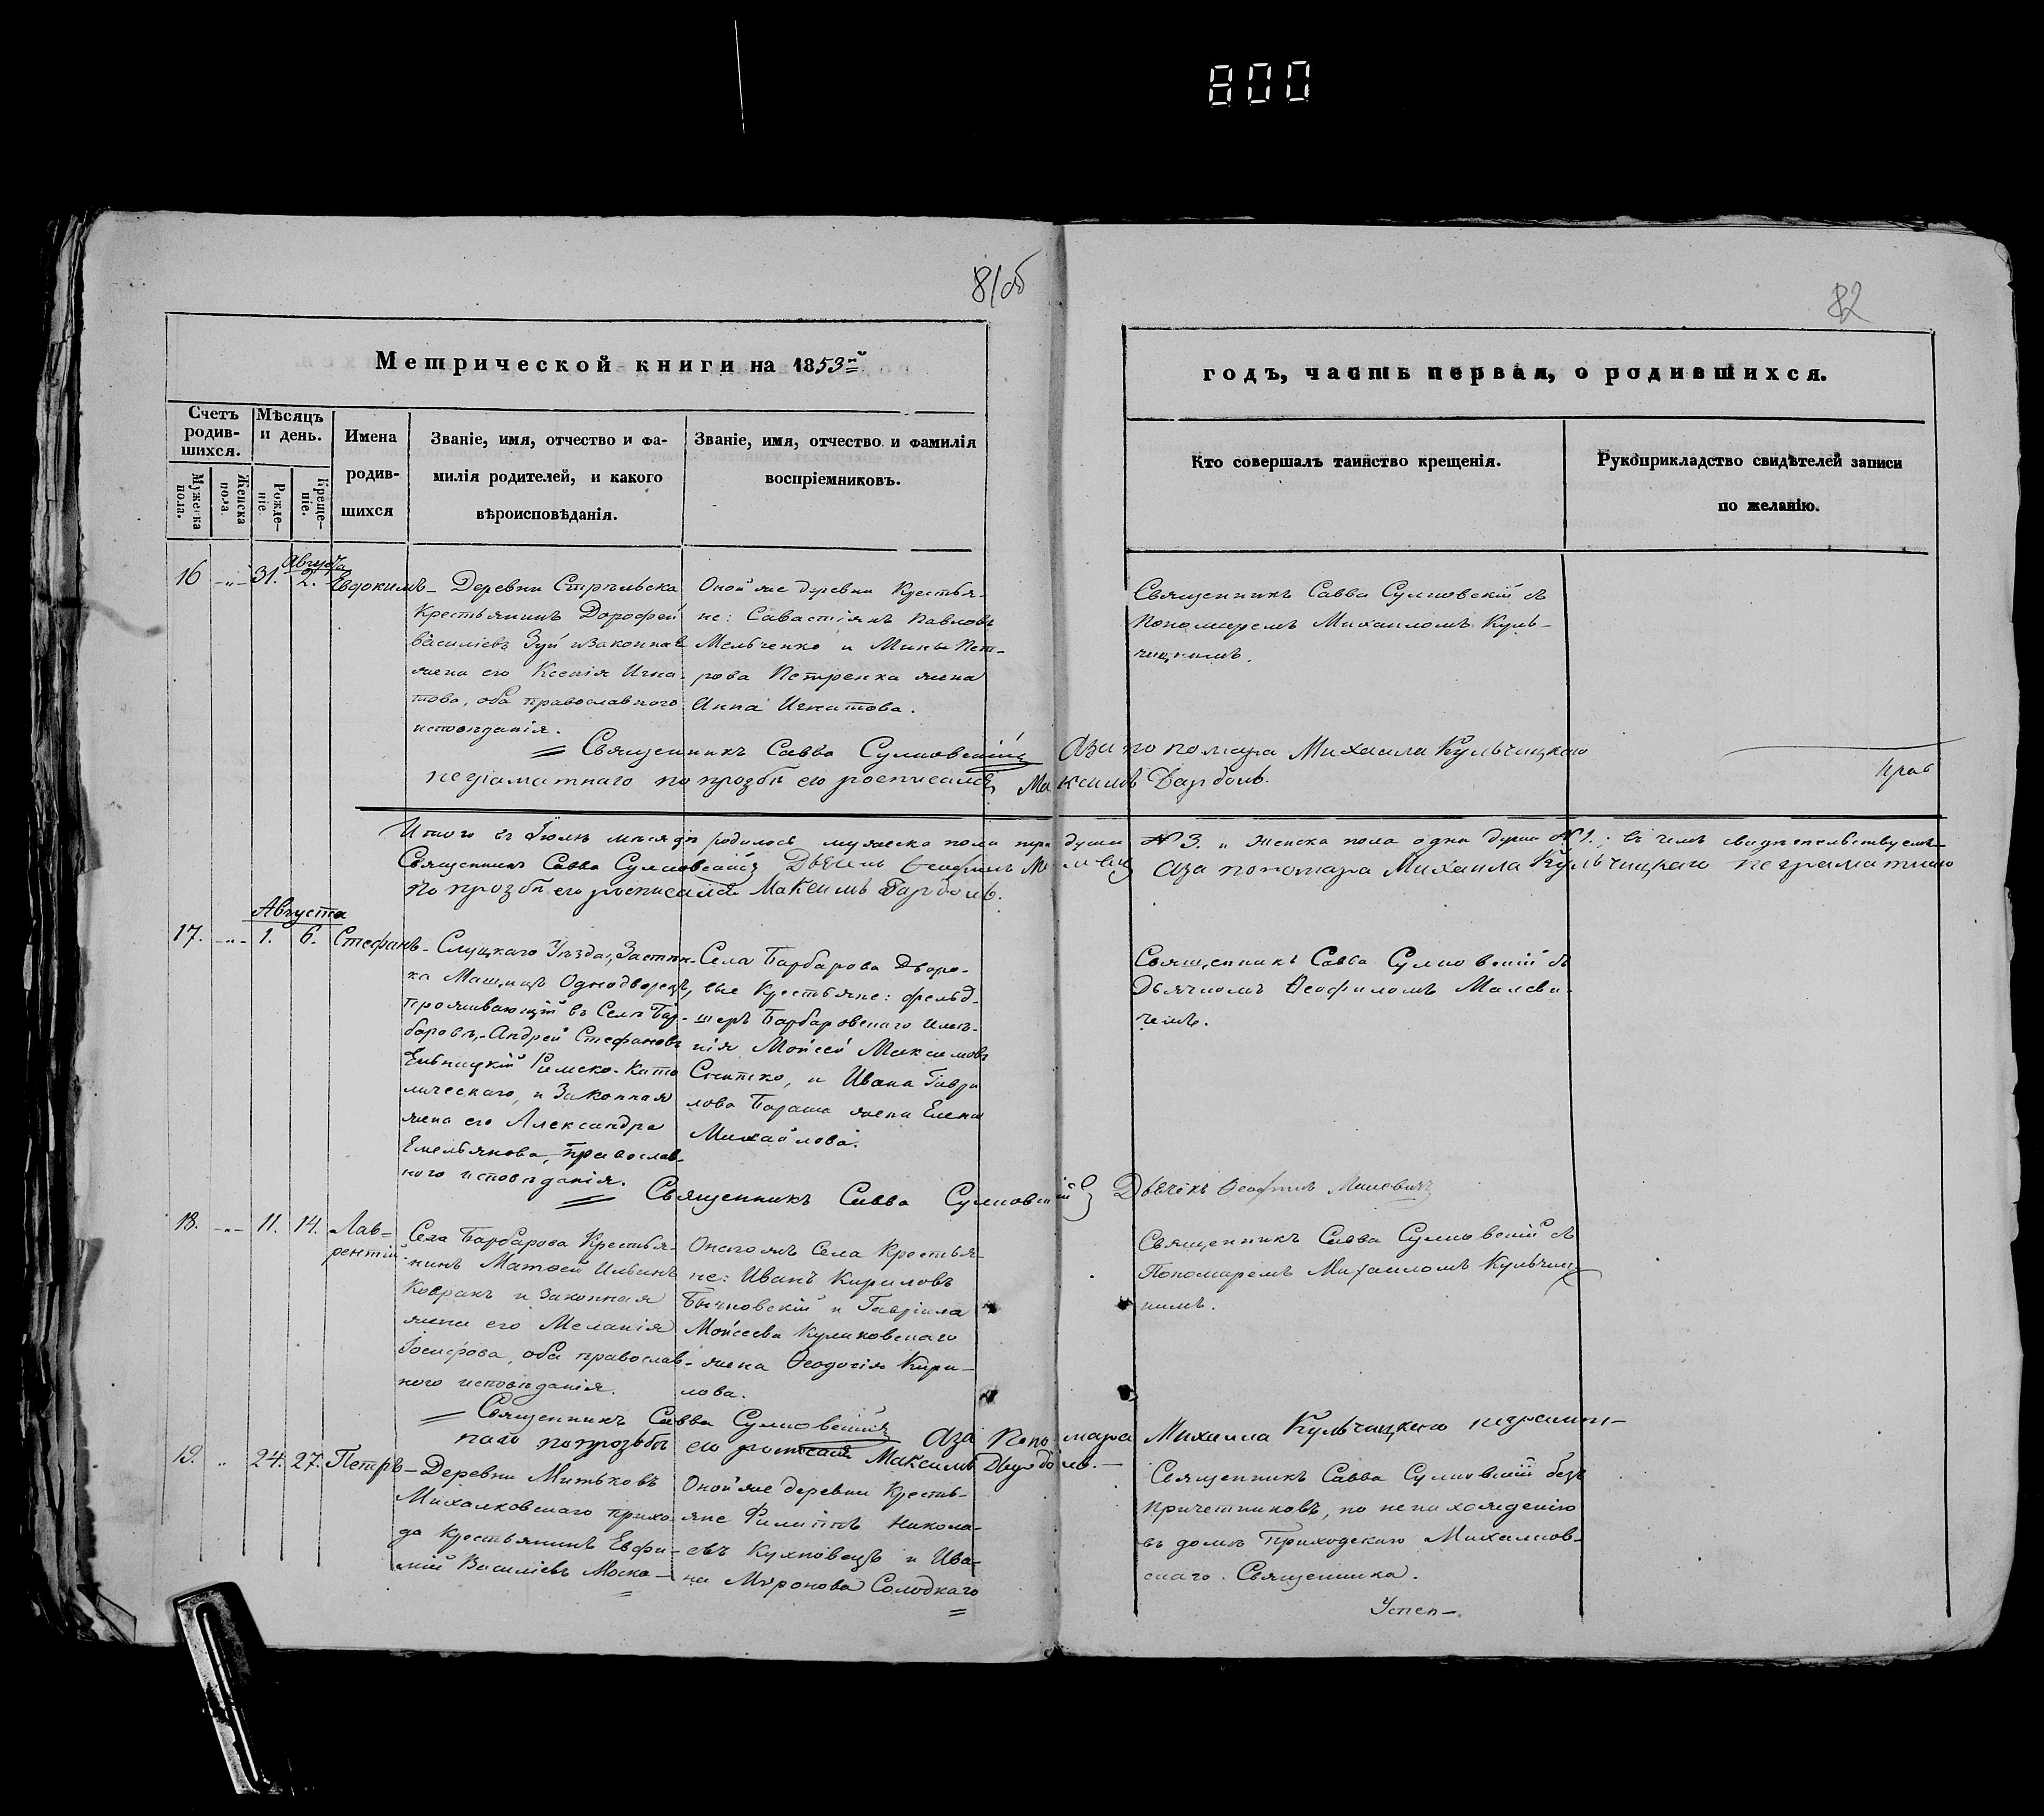 800
81об
82
Метрической книги на 1853й
годъ, часть первая, о родившихся.
Счетъ родив-шихся.
Мѣсяцъ и день.
Имена родив-шихся
Званіе, имя, отчество и фа-
милія родителей, и какого
вѣроисповѣданія.
Званіе, имя, отчество и фамилія
воспріемниковъ.
Кто совершалъ таинство крещенія.
Рукоприкладство свидѣтелей записи
по желанію.
Мужеска пола.
Женска пола.
Рожде-ніе.
Креще-ніе.
Августа
16 -„- 31. 2. Евдокимъ-
Деревни Стрѣльска
Крестьянинъ Дорофей
Василіевъ Зуй и законная
жена его Ксенія Игна-
това, оба православного
исповѣданія.
Оной же деревни Крестья-
не: Савастіянъ Павловъ
Мельченко и Мины Пет-
рова Петренка жена
Анна Игнатова.
Священникъ Савва Сулковскій съ
Пономаремъ Михаиломъ Куль-
чицкимъ.
Священникъ Савва Сулковскій Аза пономара Михаила Кульчицкаго
неграматнаго по прозбѣ его росписался Максимъ
Итого въ Іюлѣ мѣсяцѣ родилось мужеска пола три души № 3. и женска пола одна душа № 1.; въ чемъ свидѣтельствуемъ
Священникъ Савва Сулковскій Дьячекъ Ѳеофилъ Аза пономара Михаила Кульчицкаго неграматнаго
по прозбѣ его росписался Максимъ
Августа
17. -„- 1. 6. Стефанъ-
Слуцкаго Уѣзда, Застѣн-
ка Машицъ Однодворецъ,
проживающій въ Селѣ Бар-
баровѣ,-Андрей Стефановъ
Римско-Като
лическаго, и Законная
жена его Александра
Емельянова, православ-
ного исповѣданія.
Села Барбарова Дворо-
вые Крестьяне: фельд-
шеръ Барбаровскаго имѣ-
нія Мойсей Максимовъ
Снитко, и Ивана Гаври
лова Бараша жена Елена
Михайлова.
Священникъ Савва Сулковскій съ
Дьячкомъ Ѳеофиломъ Малеви-
чемъ.
Священникъ Савва Сулковскій Дьячекъ Ѳеофилъ Малевичъ
18. -„- 11. 14. Лав-
рентій-
Села Барбарова Крестья-
нинъ Матѳей Ильинъ
Ковракъ и законная
жена его Меланія
Іосифова, оба православ-
ного исповѣданія.
Оногожъ Села Крестья-
не: Иванъ Кириловъ
Бычковскій и Гавріила
Мойсеева Куликовскаго
жена Ѳеодосія Кири-
лова.
Священникъ Савва Сулковскій съ
Пономаремъ Михаиломъ Кульчиц-
кимъ.
Священникъ Савва Сулковскій Аза Пономара Михаила Кульчицкаго неграмат-
наго по прозьбѣ его росписался Максимъ
19. „ 24. 27. Петръ-
Деревни Митьковъ
Михалковскаго прихо
да Крестьянинъ Евфи-
мій Василіевъ Моско-
Оной же деревни Кресть-
яне Филиппъ Никола-
евъ Кухновецъ и Ива-
на Миронова Солодкаго
Священникъ Савва Сулковскій безъ
Причетниковъ, по ненахожденію
въ домѣ Приходскаго Михалков-
скаго Священника.